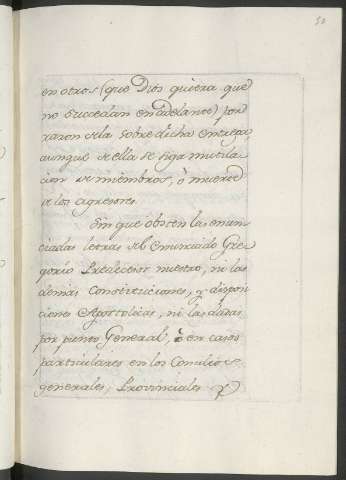 50
en otros (que Dios quiera que
no succedan en adelante) por
razon de la sobredicha entrega,
aunque de ella se siga mutila
cion de miembros, ò muerte
de los agresores.
Sin que obsten las enun
ciadas letras del enunciado Gre
gorio Predecesor nuestro, ni las
demas Constituciones, y disposi
ciones Apostolicas, ni las dadas
por punto General, ò en casos
particulares en los Concilios
generales, Provinciales y